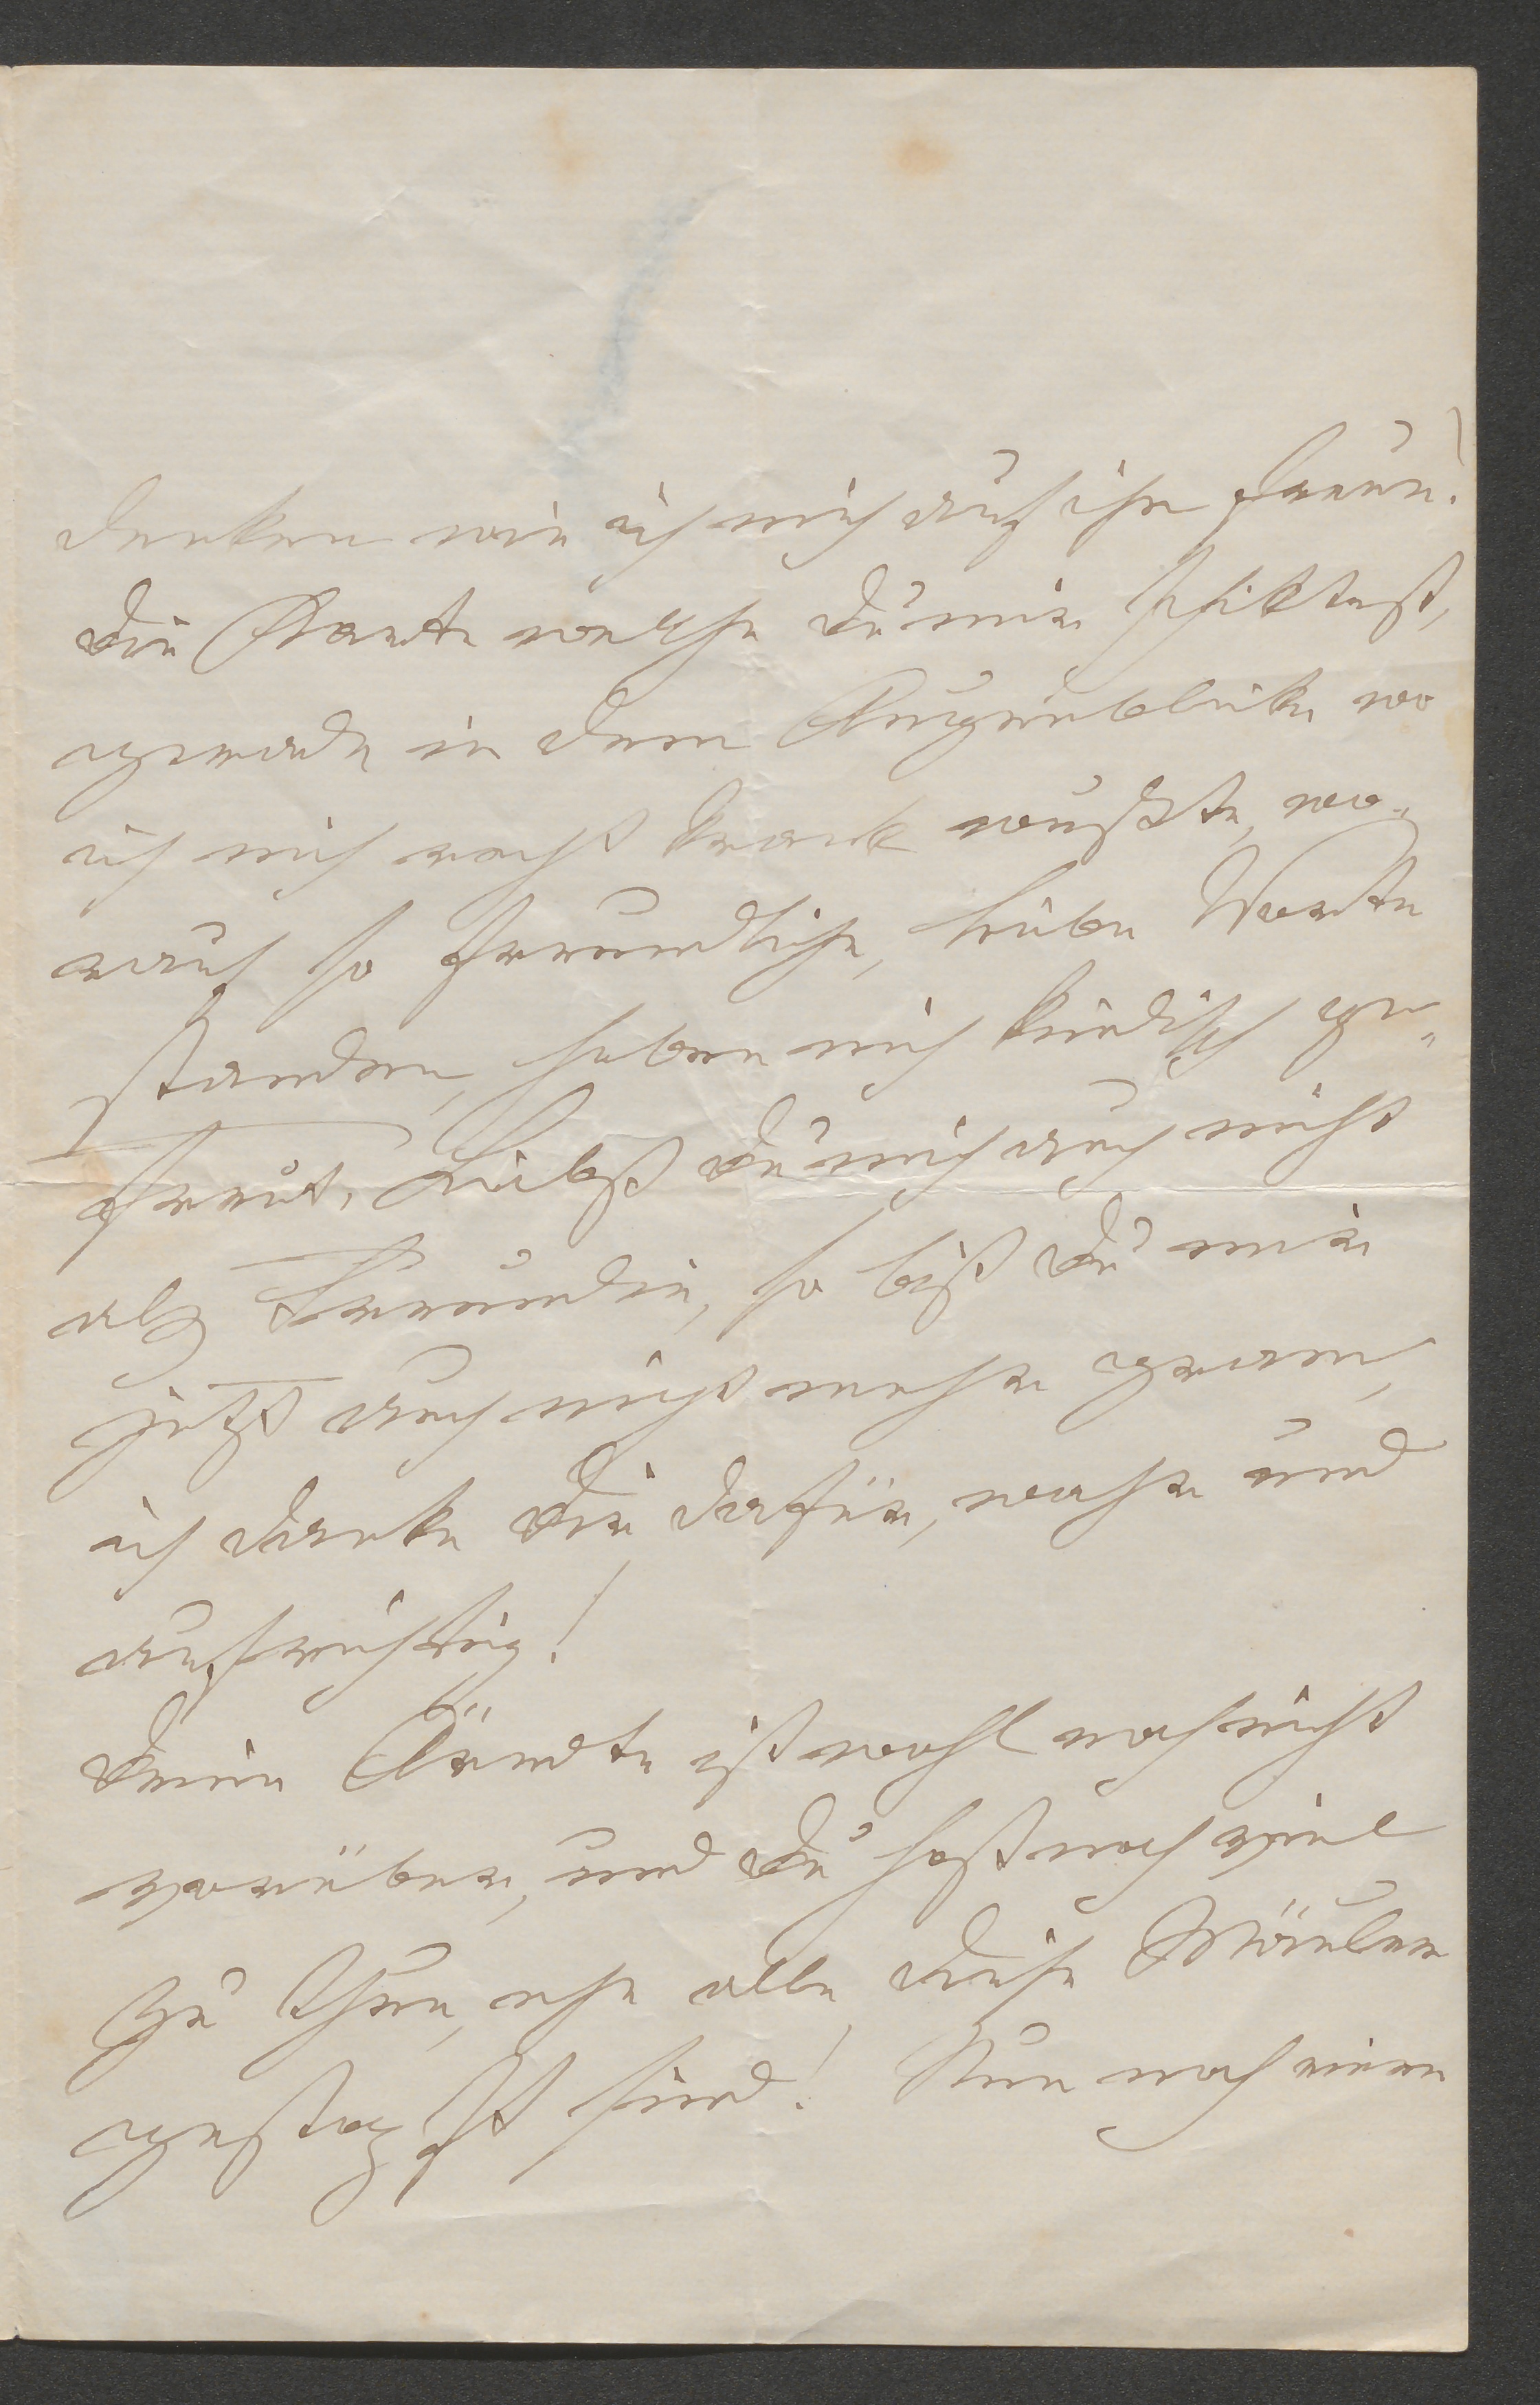 denken wie ich mich auf ihn freue!
Die Karte welche Du mir schiktest,
gerade in dem Augenblicke wo
ich mich recht krank wußte, wo-
rauf so freundliche, liebe Worte
standen, haben mich kindisch ge-
freut. Liebst Du mich auch nicht
als Freundin, so bist Du mir
jetzt auch nicht mehr gram,
ich danke Dir dafür, wahr und
aufrichtig!
Deine Ärndte ist wohl noch nicht
vorüber, und Du hast noch viel
zu thun, ehe alle diese Mäuler
gestopft sind! Nun noch einen